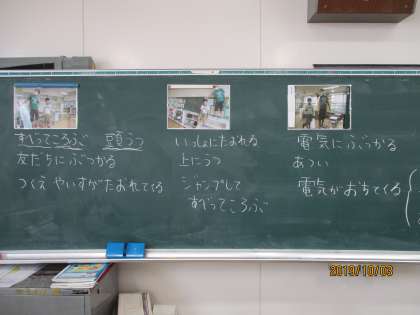 すべってころぶ 頭うつ
友だちにぶつかる
つくえやいすがたおれてくる
いっしょにたおれる
上にうつ
ジャンプして
すべってころぶ
電気にぶつかる
あつい
電気がおちてくる
2019/10/03